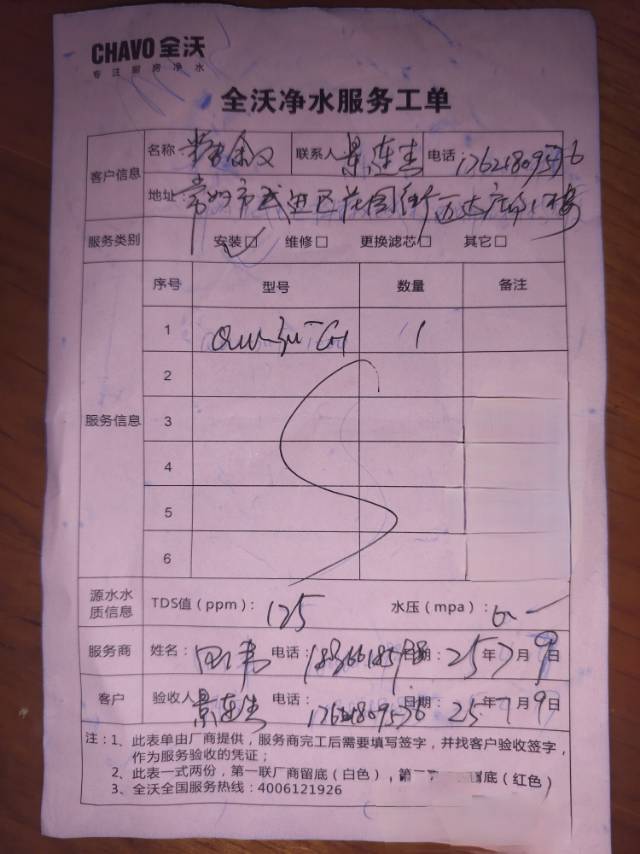 CHAVO 全沃
专注厨房净水
全沃净水服务工单
客户信息
名称 联系人 景连杰 电话
地址 常州市武进区花园街万达广场1楼
服务类别 安装☑ 维修□ 更换滤芯□ 其它□
服务信息
序号 型号 数量 备注
1 1
2
3
4
5
6
源水水质信息
TDS值（ppm）： 125 水压（mpa）：
服务商 姓名： 电话： 日期： 25年7月9日
客户 验收人 景连杰 电话： 17621809576 日期： 25年7月9日
注：1、此表单由厂商提供，服务商完工后需要填写签字，并找客户验收签字，
作为服务验收的凭证；
2、此表一式两份，第一联厂商留底（白色），第二 留底（红色）
3、全沃全国服务热线：4006121926